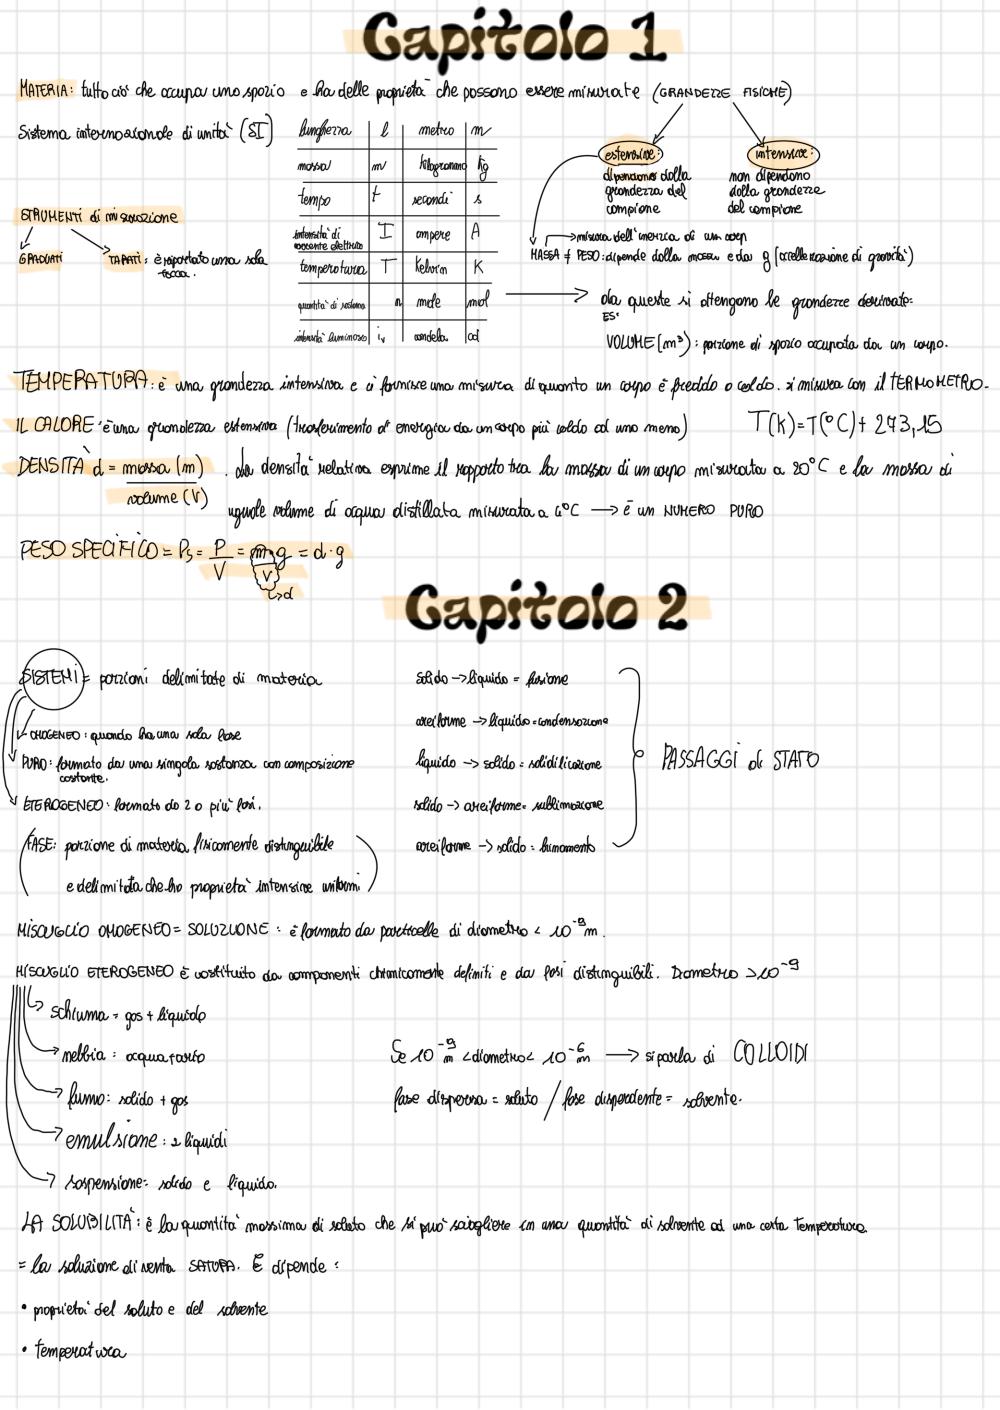 Capitolo 1
MATERIA: tutto ciò che occupa uno spazio e ha delle proprietà che possono essere misurate (GRANDEZZE FISICHE)
Sistema internazionale di unità (SI)
lunghezza l metro m
massa m kilogrammo kg
tempo t secondi s
intensità di corrente elettrica I ampere A
temperatura T Kelvin K
quantità di sostanza n mole mol
intensità luminosa iv candela cd
estensive:
dipendono dalla
grandezza del
campione
intensive:
non dipendono
dalla grandezza
del campione
STRUMENTI di misurazione
GRADUATI
TARATI: è riportato una sola
tacca.
misura dell'inerzia di un corpo
MASSA ≠ PESO: dipende dalla massa e da g (accellerazione di gravità)
da queste si ottengono le grandezze derivate:
ES:
VOLUME [m³): porzione di spazio occupata da un corpo.
TEMPERATURA: è una grandezza intensiva e ci fornisce una misura di quanto un corpo è freddo o caldo. si misura con il TERMOMETRO.
IL CALORE è una grandezza estensiva (trasferimento di energia da un corpo più caldo ad uno meno) T(K)=T(°C)+ 273,15
DENSITÀ d = massa (m)
volume (V)
. La densità relativa esprime il rapporto tra la massa di un corpo misurata a 20°C e la massa di
uguale volume di acqua distillata misurata a 4°C → è un NUMERO PURO
PESO SPECIFICO = Ps = P/V = m·g/V = d·g
↳d
Capitolo 2
SISTEMI = porzioni delimitate di materia
OMOGENEO: quando ha una sola fase
PURO: formato da una singola sostanza con composizione
costante.
ETEROGENEO: formato da 2 o più fasi.
(FASE: porzione di materia fisicamente distinguibile
e delimitata che ha proprietà intensive uniformi)
solido → liquido = fusione
aeriforme → liquido = condensazione
liquido → solido = solidificazione
solido → aeriforme = sublimazione
aeriforme → solido = brinamento
PASSAGGI di STATO
MISCUGLIO OMOGENEO = SOLUZIONE: è formato da particelle di diametro < 10⁻⁹ m.
MISCUGLIO ETEROGENEO è costituito da componenti chimicamente definiti e da fasi distinguibili. Diametro > 10⁻⁹
schiuma = gas + liquido
nebbia: acqua + aria
fumo: solido + gas
emulsione: 2 liquidi
sospensione: solido e liquido.
Se 10⁻⁹ m < diametro < 10⁻⁶ m → si parla di COLLOIDI
fase dispersa = soluto / fase disperdente = solvente.
LA SOLUBILITÀ: è la quantità massima di soluto che si può sciogliere in una quantità di solvente ad una certa temperatura.
= la soluzione diventa SATURA. E dipende:
• proprietà del soluto e del solvente
• temperatura